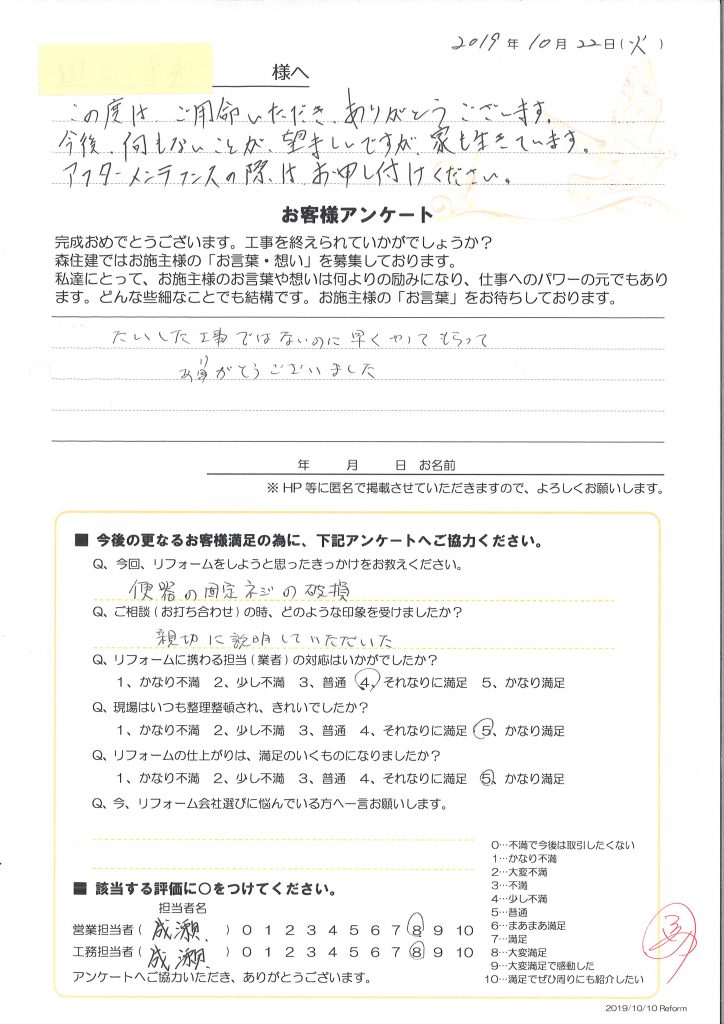 2019年10月22日(火)
様へ
この度は、ご用命いただき、ありがとうございます。
今後、何もないことが、望ましいですが、家も生きています。
アフターメンテナンスの際は、お申し付けください。
お客様アンケート
完成おめでとうございます。工事を終えられていかがでしょうか?
森住建ではお施主様の「お言葉・想い」を募集しております。
私達にとって、お施主様のお言葉や想いは何よりの励みになり、仕事へのパワーの元でもあり
ます。どんな些細なことでも結構です。お施主様の「お言葉」をお待ちしております。
たいした工事ではないのに早くやってもらって
ありがとうございました
年 月 日 お名前
※HP等に匿名で掲載させていただきますので、よろしくお願いします。
■ 今後の更なるお客様満足の為に、下記アンケートへご協力ください。
Q、今回、リフォームをしようと思ったきっかけをお教えください。
便器の固定ネジの破損
Q、ご相談(お打ち合わせ)の時、どのような印象を受けましたか?
親切に説明していただいた
Q、リフォームに携わる担当(業者)の対応はいかがでしたか?
1、かなり不満 2、少し不満 3、普通 4、それなりに満足 5、かなり満足
Q、現場はいつも整理整頓され、きれいでしたか?
1、かなり不満 2、少し不満 3、普通 4、それなりに満足 5、かなり満足
Q、リフォームの仕上がりは、満足のいくものになりましたか?
1、かなり不満 2、少し不満 3、普通 4、それなりに満足 5、かなり満足
Q、今、リフォーム会社選びに悩んでいる方へ一言お願いします。
■ 該当する評価に○をつけてください。
担当者名
営業担当者(成瀬) 0 1 2 3 4 5 6 7 8 9 10
工務担当者(成瀬) 0 1 2 3 4 5 6 7 8 9 10
アンケートへご協力いただき、ありがとうございます。
0…不満で今後は取引したくない
1…かなり不満
2…大変不満
3…不満
4…少し不満
5…普通
6…まあまあ満足
7…満足
8…大変満足
9…大変満足で感動した
10…満足でぜひ周りにも紹介したい
2019/10/10 Reform